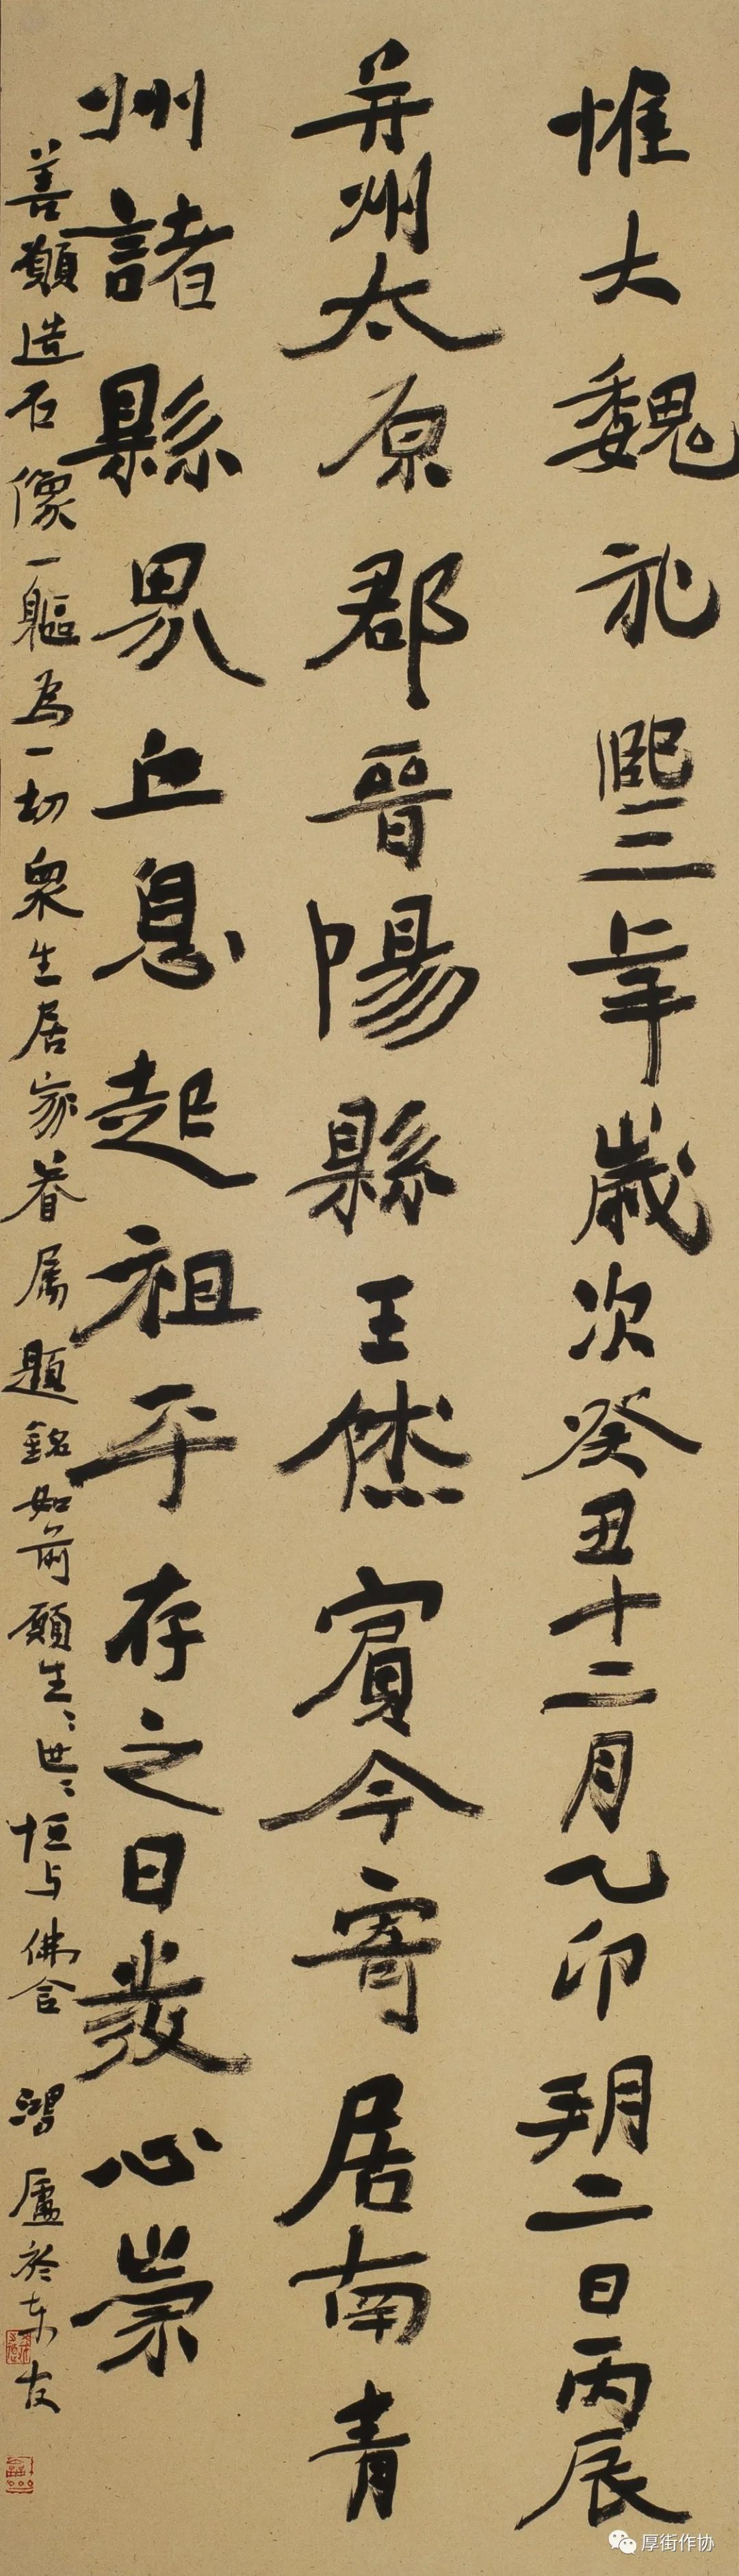 惟大魏神龜三年歲次癸丑十二月乙卯朔二日丙辰
并州太原郡晉陽縣王然賓今寄居南青
州諸縣界立息起祖平存之日發心崇
善願造石像一軀為一切眾生居家眷屬題銘如前願生〻世〻恒与佛會 鴻廬於東
厚街作协